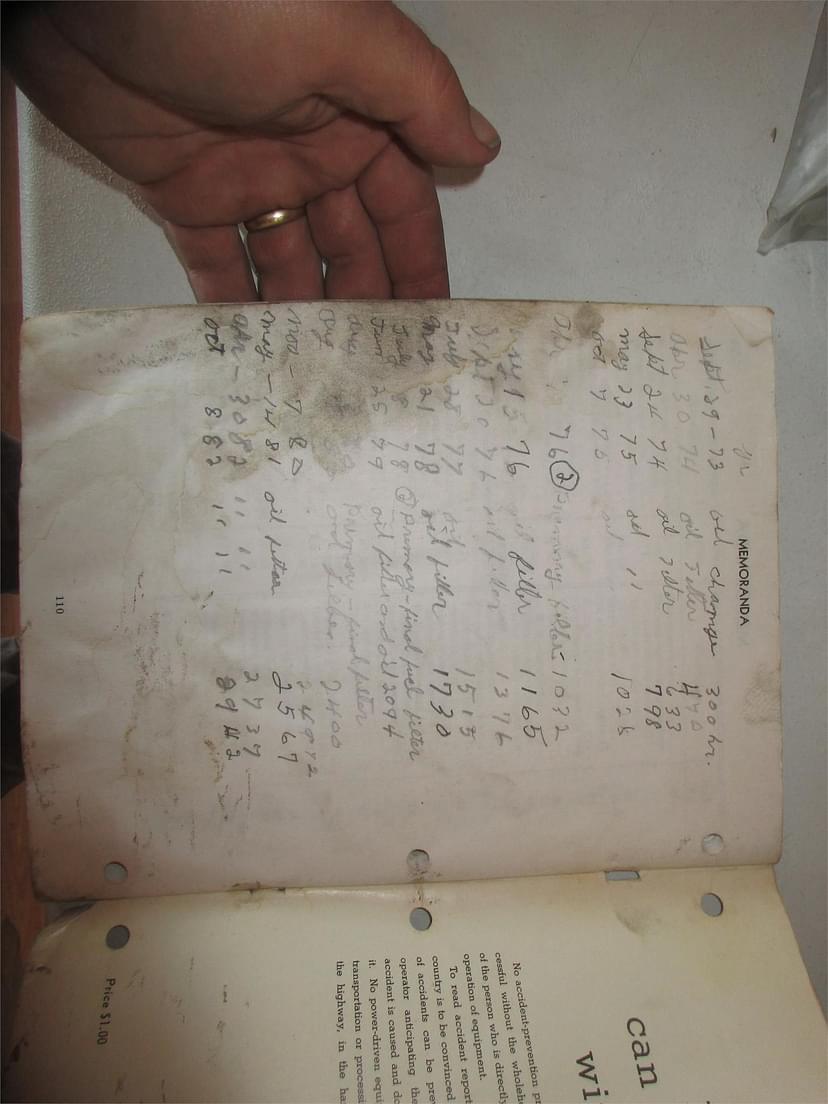 MEMORANDA
Sept. 29-73 oil change 300 hr.
Apr 30 74 oil Filter
Sept 24 74 oil Filter 633
May 23 75 oil " 798
Oct 7 75 oil 1026
76 ② Primary-filter 1032
15 76 oil filter 1165
Sept 20 76 oil filter 1376
July 28 77 oil 1515
May 21 78 oil filter 1730
July 8 78 ② Primary-final fuel filter
Jun 25 79 oil filter and oil 2094
Primary-final filter
and 2400
Nov - 7 80
May - 14 81 oil filter 2567
Apr - 30 82 " " 2737
Oct 8 82 " " 2942
110
can
wi
No accident-prevention pr
cessful without the wholeh
of the person who is directly
operation of equipment.
To read accident report
country is to be convinced
of accidents can be prev
operator anticipating the
accident is caused and do
it. No power-driven equi
transportation or processi
the highway, in the ha
Price $1.00